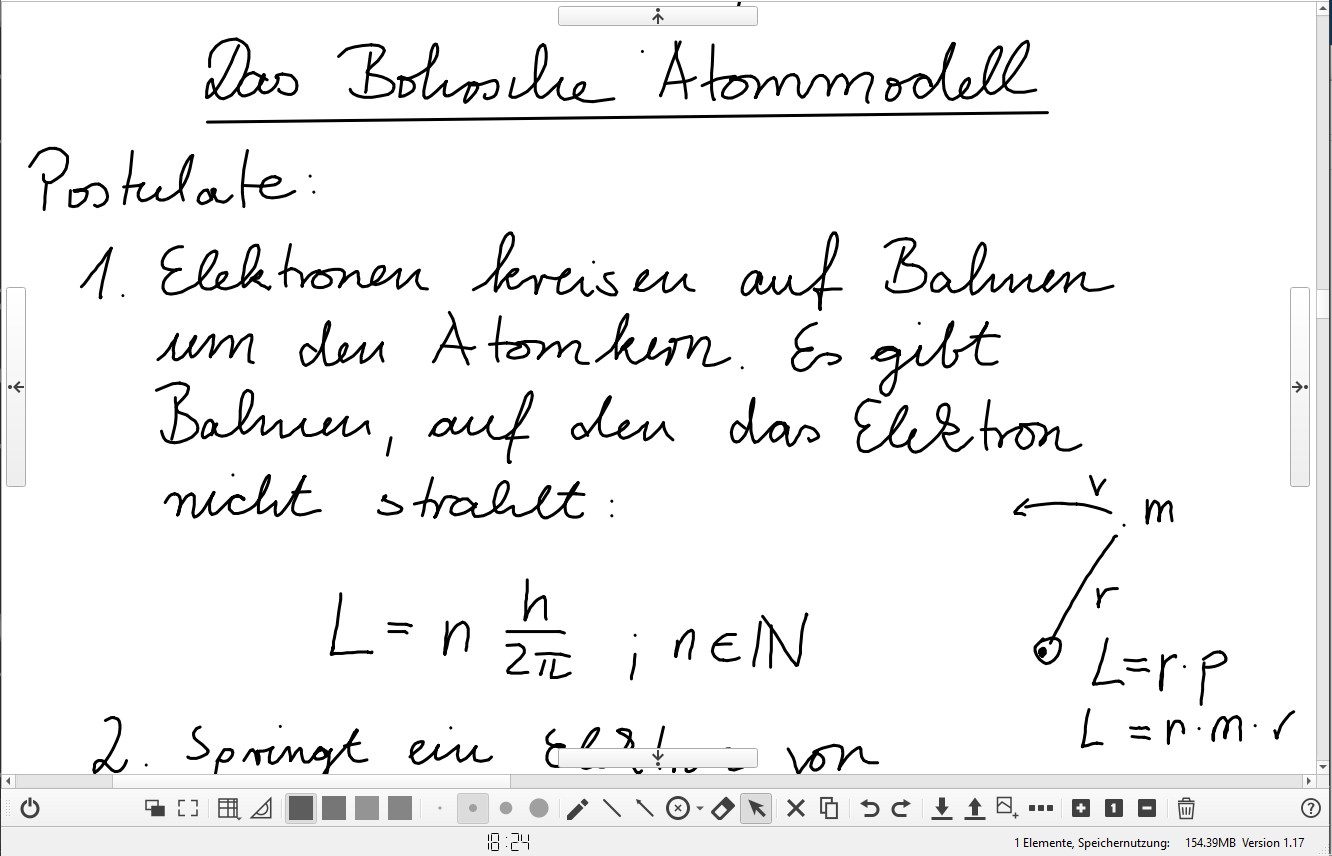 Das Bohrsche Atommodell
Postulate:
1. Elektronen kreisen auf Bahnen
um den Atomkern. Es gibt
Bahnen, auf den das Elektron
nicht strahlt:
v
m
r
L = n h/2π ; n∈ℕ
L=r·p
L = r·m·v
2. Springt ein Elektron von
1
18:24
1 Elemente, Speichernutzung: 154.39MB Version 1.17